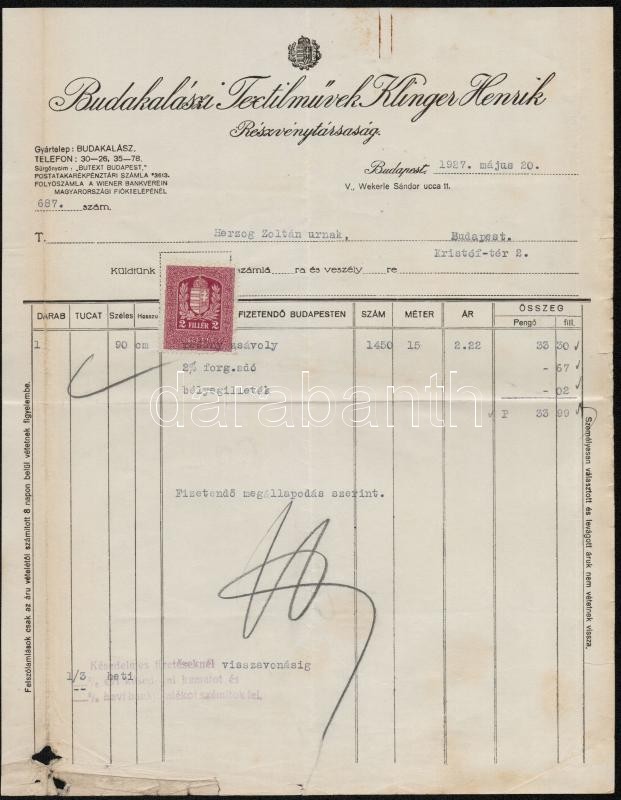 Budakalászi Textilművek Klinger Henrik
Részvénytársaság.
Gyártelep: BUDAKALÁSZ.
TELEFON: 30—26, 35—78.
Sürgönycim: „BUTEXT BUDAPEST,"
POSTATAKARÉKPÉNZTÁRI SZÁMLA *3613.
FOLYÓSZÁMLA A WIENER BANKVEREIN
MAGYARORSZÁGI FIÓKTELEPÉNÉL
Budapest, 1927. május 20.
V., Wekerle Sándor ucca 11.
687. szám.
T. Herzog Zoltán urnak, Budapest.
Kristóf-tér 2.
Küldtünk számlá ra és veszély re
2 FILLÉR 2
DARAB TUCAT Széles Hossz FIZETENDŐ BUDAPESTEN SZÁM MÉTER ÁR ÖSSZEG
Pengő fill.
1 90 cm sávoly 1450 15 2.22 33 30
2% forg.adó - 67
bélyegilleték - 02
P 33 99
Fizetendő megállapodás szerint.
Felszólamlások csak az áru vételétől számított 8 napon belül vétetnek figyelembe.
Személyesen választott és levágott áruk nem vétetnek vissza.
Késedelmes fizetéseknél visszavonásig
1/3 heti kamatot és
számítok fel.
darabanth